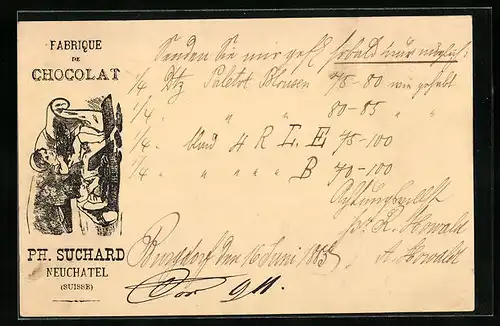 FABRIQUE
DE
CHOCOLAT
PH. SUCHARD
NEUCHATEL
(SUISSE)
Senden Sie mir gefl sobald nur möglich:
1/4 Dtz Paletot Blousen 75-80 wie gehabt
1/4 " " " 80-85 " "
1/4 " blau 4 R L. E 75-100
1/4 " " " " " B 70-100
Achtungsvollst
pr. R. Howald
A. Howald
Burgdorf den 16 Juni 1885
911.